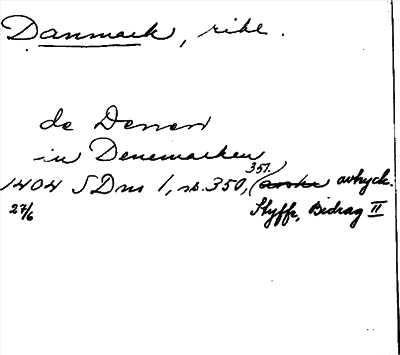 Danmark, rike.
de Denen
in Denemarken
1404 SDns 1, s. 350, 351. ( avtryck.
27/6 Styffe, Bidrag II